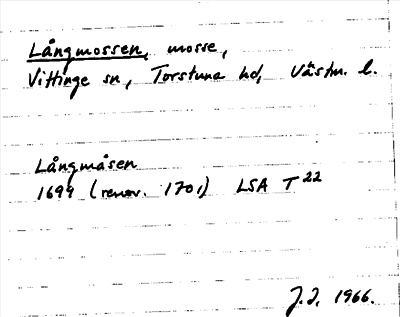 Långmossen, mosse,
Vittinge sn, Torstuna hd, Västm. l.
Långmåsen
1699 (renov. 1701) LSA T 22
J.J. 1966.